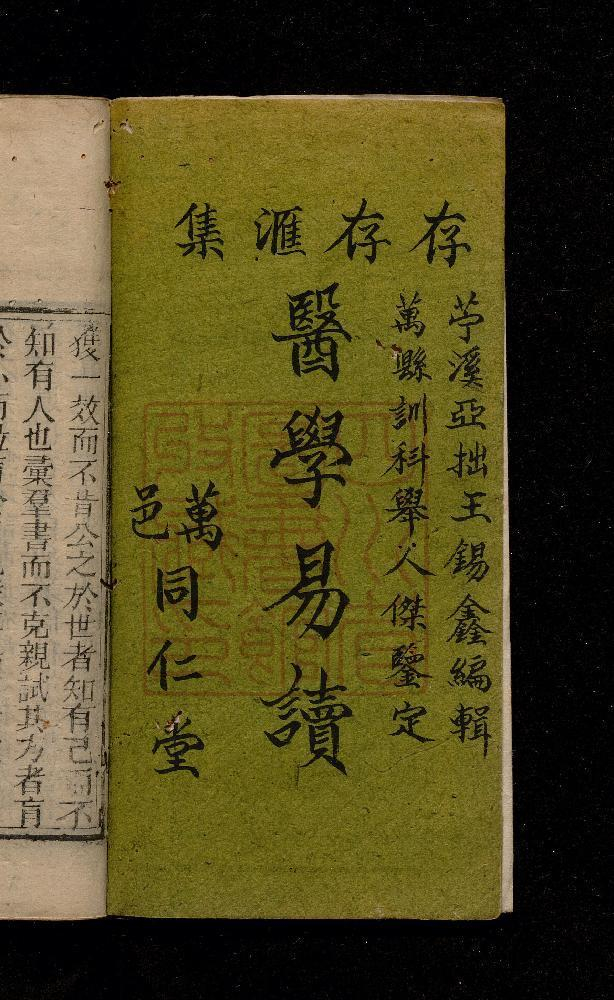 存存滙集
苧溪亞拙王錫鑫編輯
萬縣訓科舉人傑鑒定
醫學易讀
萬邑
同仁堂
獲一效而不肯公之於世者知有己而不
知有人也彙羣書而不克親試其方者肓